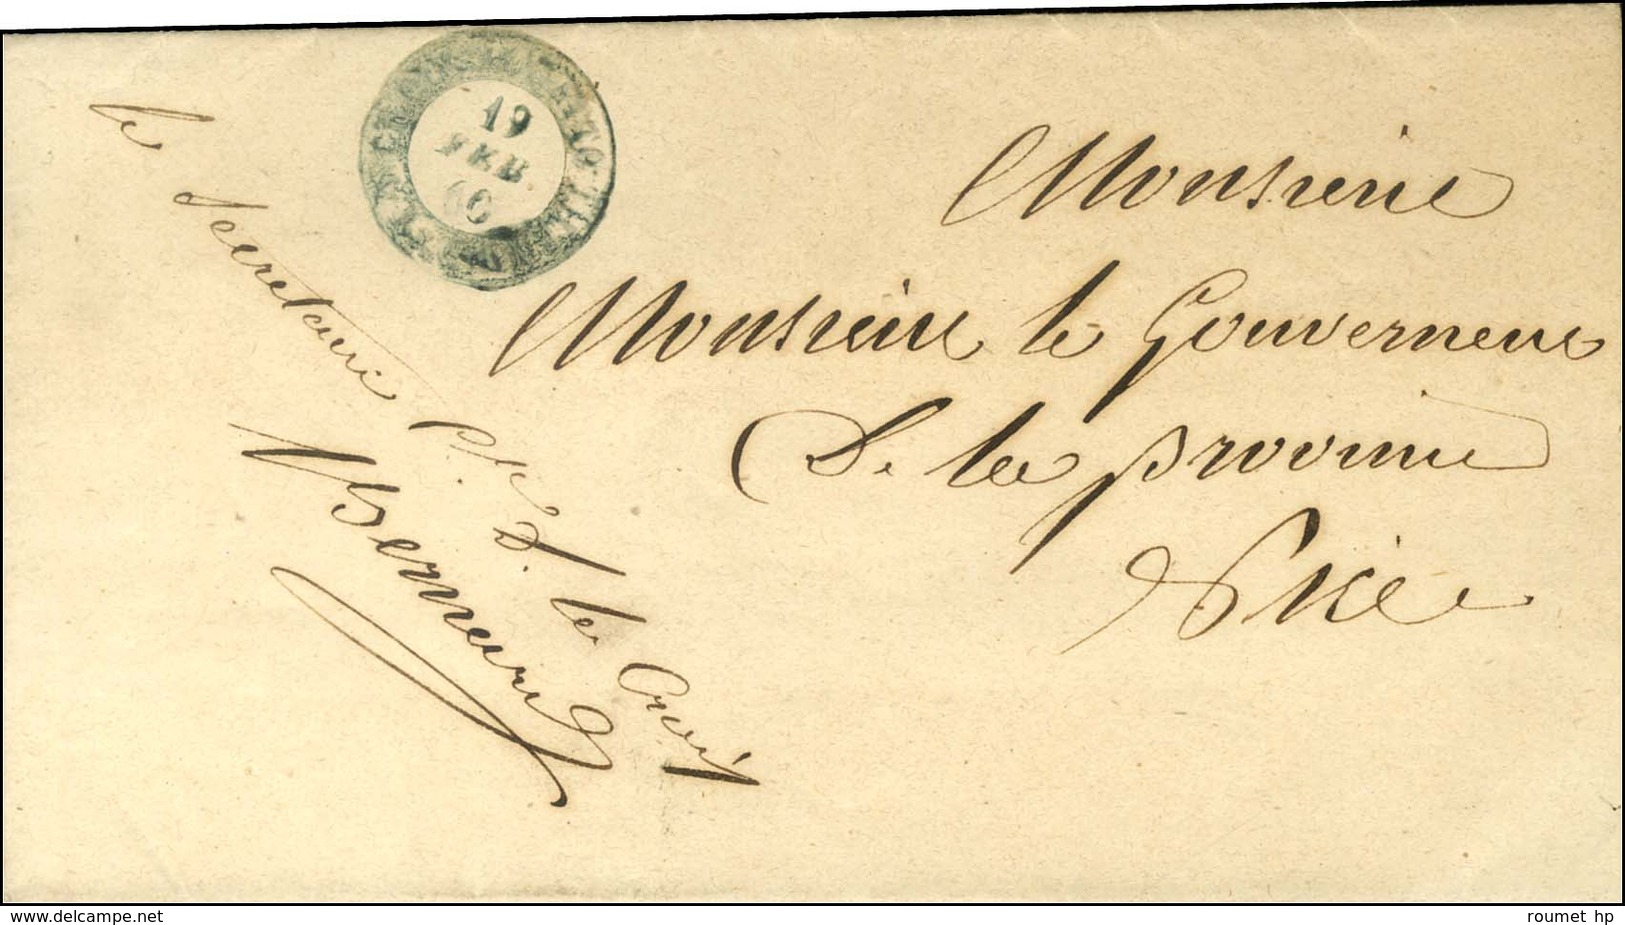 19
FEB
60
Monsieur
Monsieur le Gouverneur
De la province
Nice
le Secretaire
De la
Bermond
www.delcampe.net
roumet hp